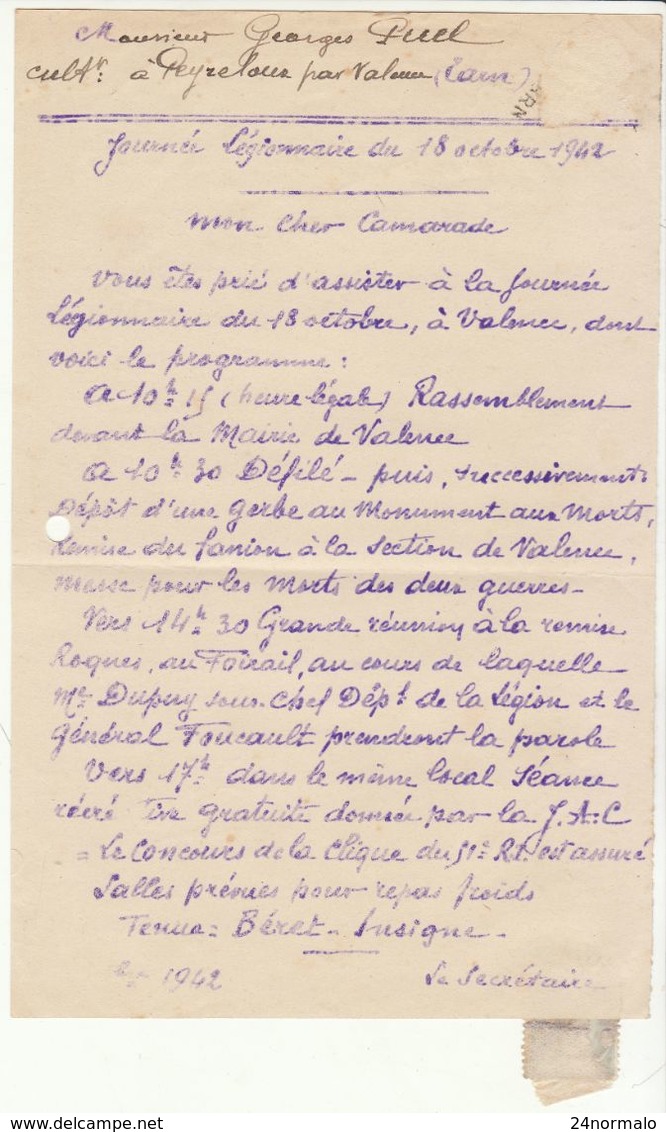 Monsieur Georges Puel
cultr. à Peyreloux par Valence (Tarn)
ARN
Journée Légionnaire du 18 octobre 1942
Mon Cher Camarade
Vous êtes prié d'assister à la Journée
Légionnaire du 18 octobre, à Valence, dont
voici le programme :
A 10h 15 (heure légale) Rassemblement
devant la Mairie de Valence
A 10h 30 Défilé - puis, successivement:
Dépôt d'une gerbe au Monument aux Morts,
Remise du fanion à la section de Valence,
Messe pour les Morts des deux guerres -
Vers 14h 30 Grande réunion à la remise
Roques, au Foirail, au cours de laquelle
Mr Dupuy sous-Chef Dépt de la Légion et le
Général Foucault prendront la parole
Vers 17h dans le même local Séance
récréative gratuite donnée par la J.A.C
= Le Concours de la Clique du 51e R.I. est assuré
Salles prévues pour repas froids
Tenue = Béret - Insigne -
1942 Le Secrétaire
www.delcampe.net 24normalo